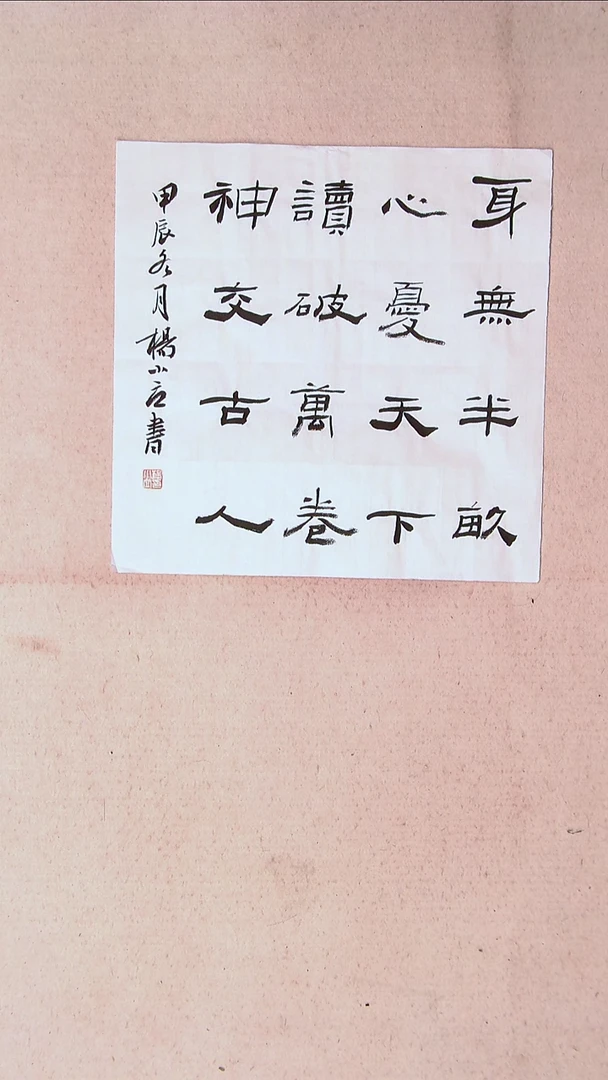 身無半畝
心憂天下
讀破萬卷
神交古人
甲辰冬月楊小書